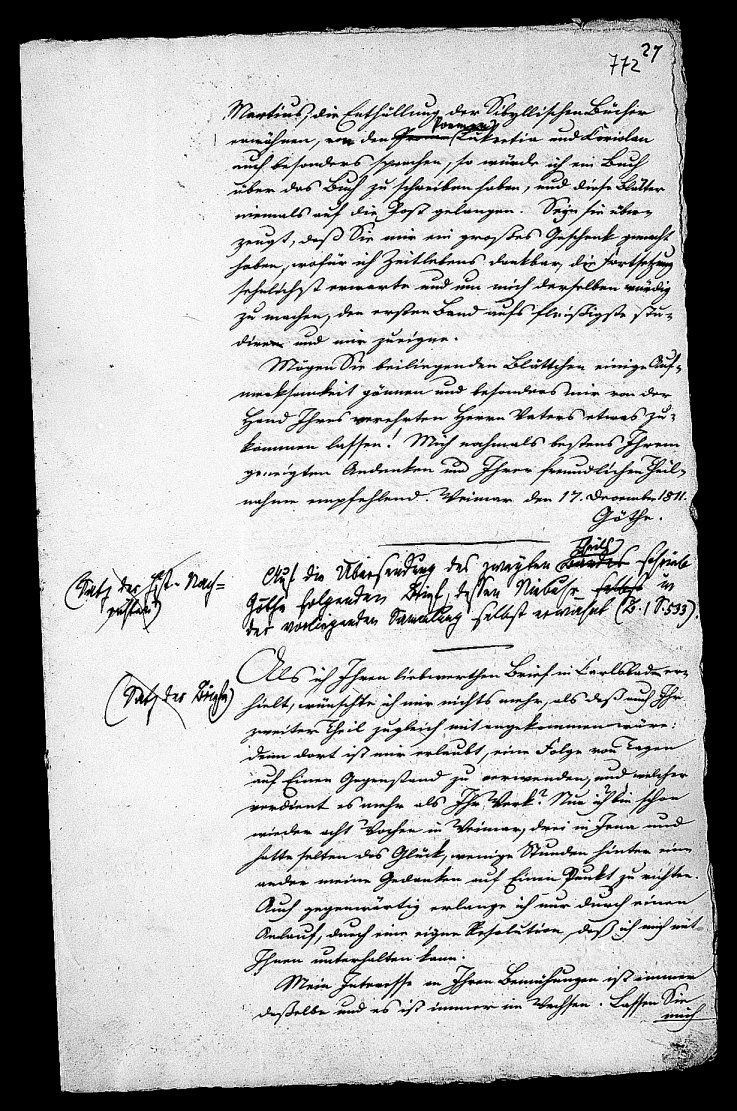 27
772
Martius, die Enthüllung der Sibyllischen Bücher
erwähnen, von den Poemen Lukretia und Koriolan
auch besonders sprechen, so würde ich ein Buch
über das Buch zu schreiben haben, und diese Blätter
niemals auf die Post gelangen. Seyn Sie über-
zeugt, daß Sie mir ein großes Geschenk gemacht
haben, wofür ich Zeitlebens dankbar, die Fortsetzung
sehnlichst erwarte und um mich derselben würdig
zu machen, den ersten Band aufs fleißigste stu-
diren und mir zueigne.
Mögen Sie beiliegenden Blättchen einige Auf-
merksamkeit gönnen und besonders mir von der
Hand Ihres verehrten Herrn Vaters etwas zu-
kommen lassen! Mich nochmals bestens Ihrem
geneigten Andenken und Ihrer freundlichen Theil-
nahme empfehlend. Weimar den 17. December 1811.
Göthe.
(Satz der Hist. Nach-
richten)
Auf die Übersendung des zweyten Bandes Theils schrieb
Göthe folgenden Brief, dessen Niebuhr selbst in
der vorliegenden Samlung selbst erwähnt (B. 1 S. 533).
(Satz der Briefe)
Als ich Ihren liebwerthen Brief in Karlsbad er-
hielt, wünschte ich mir nichts mehr, als daß auch Ihr
zweiter Theil zugleich mit angekommen wäre:
denn dort ist mir erlaubt, eine Folge von Tagen
auf Einen Gegenstand zu verwenden, und welcher
verdient es mehr als Ihr Werk? Nun ich bin schon
wieder acht Wochen in Weimar, drei in Jena und
hatte selten das Glück, wenige Stunden hinter ein-
ander meine Gedanken auf Einen Punkt zu richten.
Auch gegenwärtig erlange ich nur durch einen
Anlauf, durch eine eigne Resolution, daß ich mich mit
Ihnen unterhalten kann.
Mein Interesse an Ihren Bemühungen ist immer
dasselbe und es ist immer im Wachsen. Lassen Sie
mich